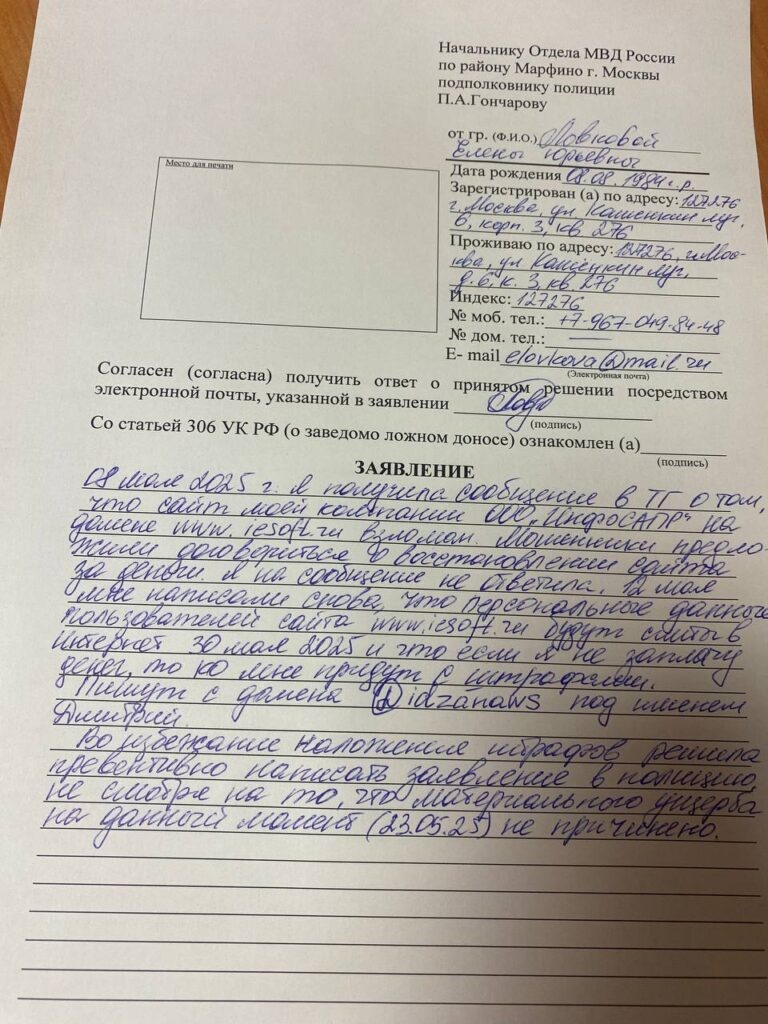 Начальнику Отдела МВД России
по району Марфино г. Москвы
подполковнику полиции
П.А.Гончарову
от гр. (Ф.И.О.) Ловковой
Елены Юрьевны
Место для печати
Дата рождения 08.08.1984 г.р.
Зарегистрирован (а) по адресу: 127276
г. Москва, ул. Кашенкин луг,
6, корп. 3, кв 276
Проживаю по адресу: 127276, г. Мос-
ква, ул Кашенкин луг,
д. 6, к. 3, кв. 276
Индекс: 127276
№ моб. тел.: +7-967-049-84-48
№ дом. тел.: —
E- mail elovkova@mail.ru
(Электронная почта)
Согласен (согласна) получить ответ о принятом решении посредством
электронной почты, указанной в заявлении
(подпись)
Со статьей 306 УК РФ (о заведомо ложном доносе) ознакомлен (а)
(подпись)
ЗАЯВЛЕНИЕ
08 мая 2025 г. я получила сообщение в ТГ о том,
что сайт моей компании ООО „ИнфоСАПР" на
домене www.iesoft.ru взломан. Мошенники предло-
жили договориться о восстановлении сайта
за деньги. Я на сообщение не ответила. 12 мая
мне написали снова, что персональные данные
пользователей сайта www.iesoft.ru будут слиты в
интернет 30 мая 2025 и что если я не заплачу
денег, то ко мне придут с штрафами.
Пишут с домена @idzanaws под именем
Дмитрий.
Во избежание наложения штрафов решила
превентивно написать заявление в полицию,
не смотря на то, что материального ущерба
на данный момент (23.05.25) не причинено.